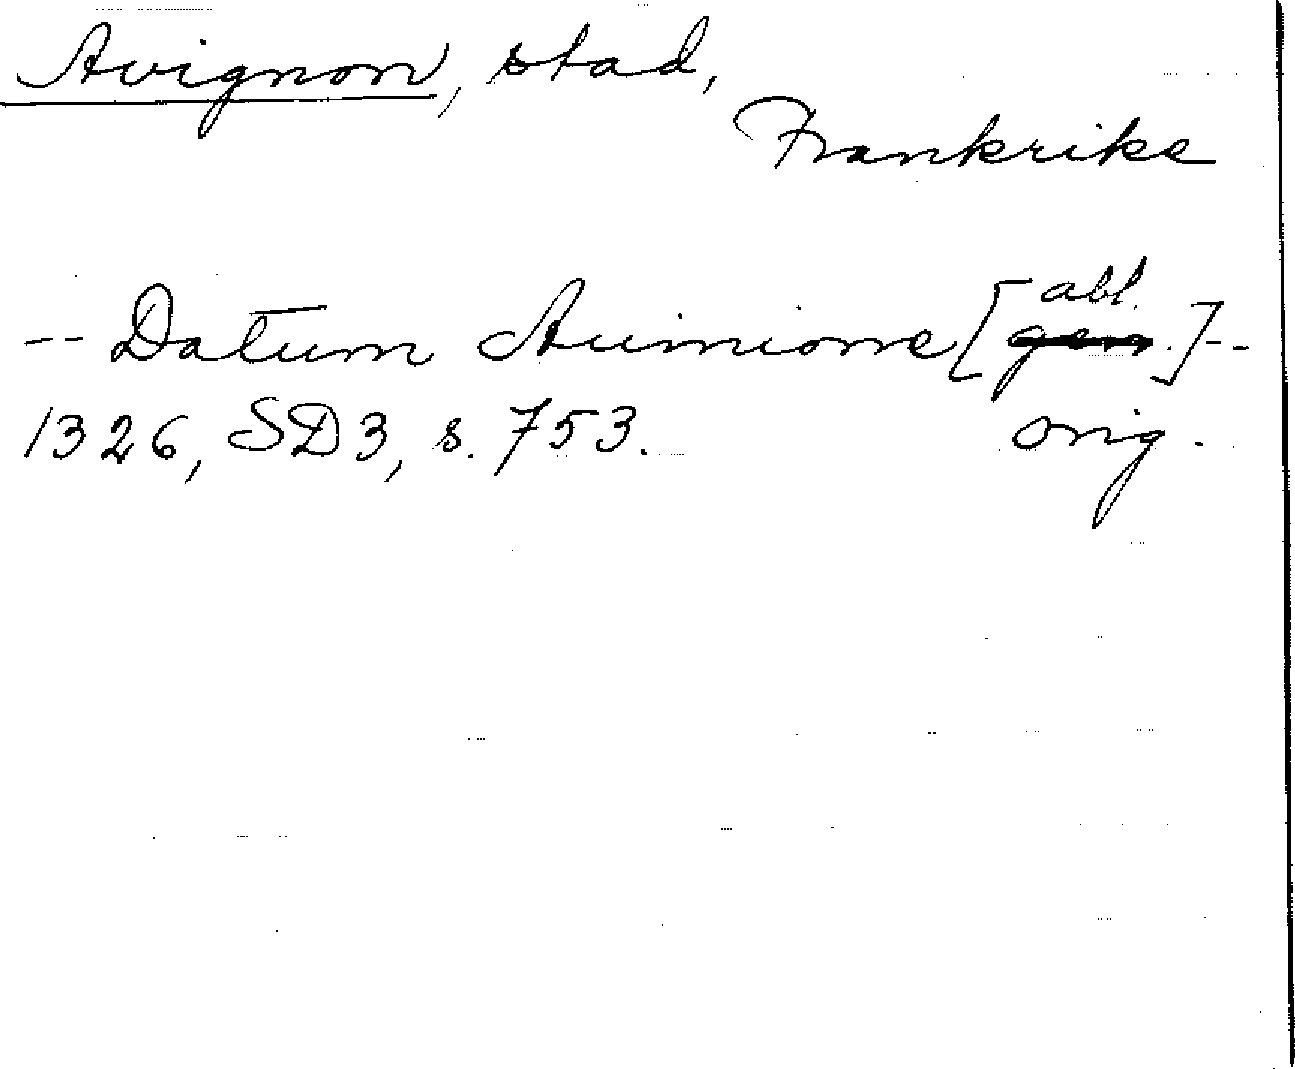 Avignon, stad,
Frankrike
-- Datum Auinione [abl. gen.]--
1326, SD3, s. 753. orig.